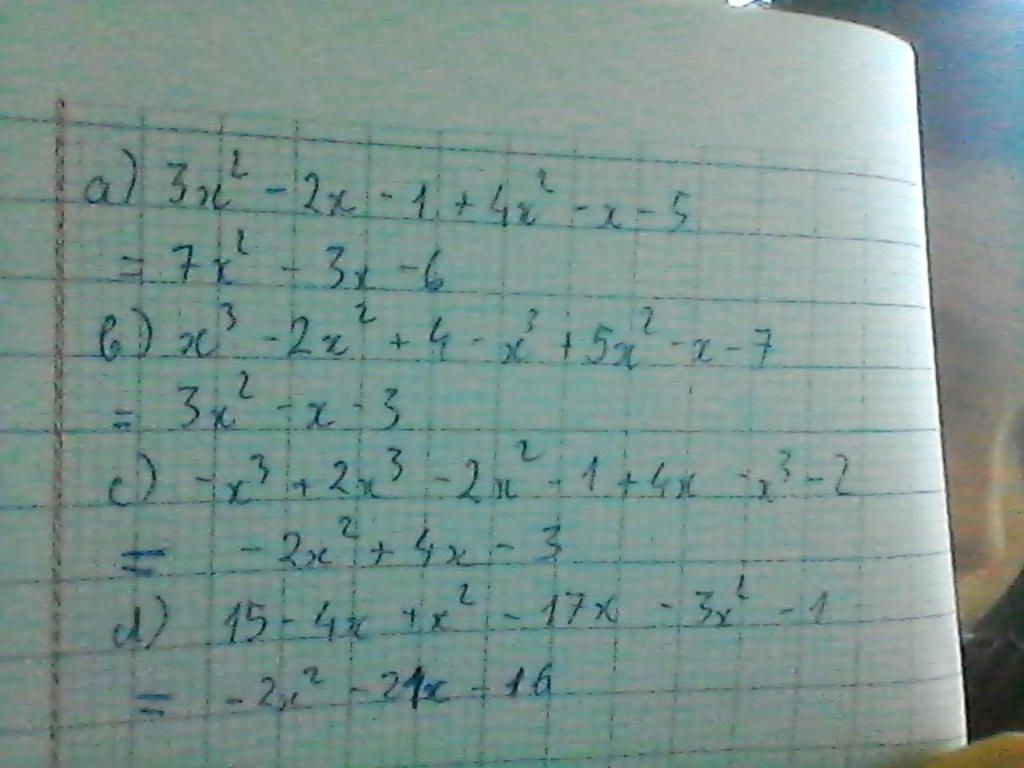 a) 3x² - 2x - 1 + 4x² - x - 5
= 7x² - 3x - 6
b) x³ - 2x² + 4 - x³ + 5x² - x - 7
= 3x² - x - 3
c) - x³ + 2x³ - 2x² - 1 + 4x - x³ - 2
= - 2x² + 4x - 3
d) 15 - 4x + x² - 17x - 3x² - 1
= - 2x² - 21x - 16